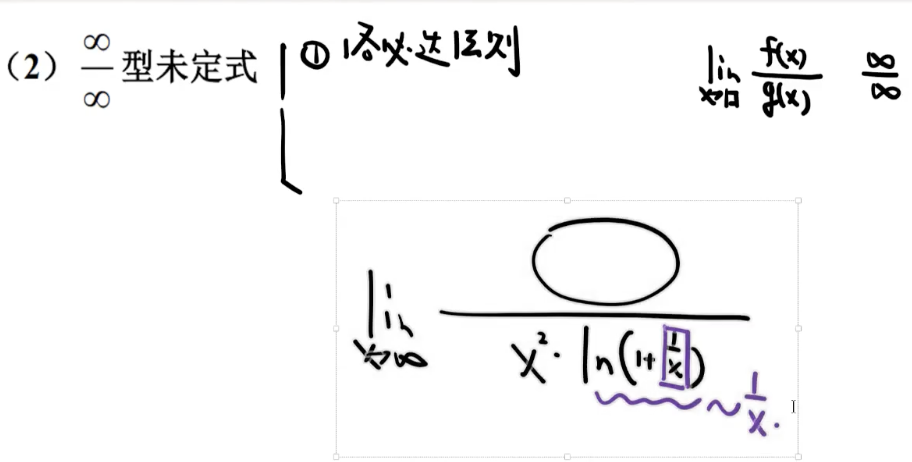 (2) ∞/∞ 型未定式 ① 洛必达法则
lim x→□ f(x)/g(x) ∞/∞
lim x→∞
x²·ln(1+1/x)
~1/x.